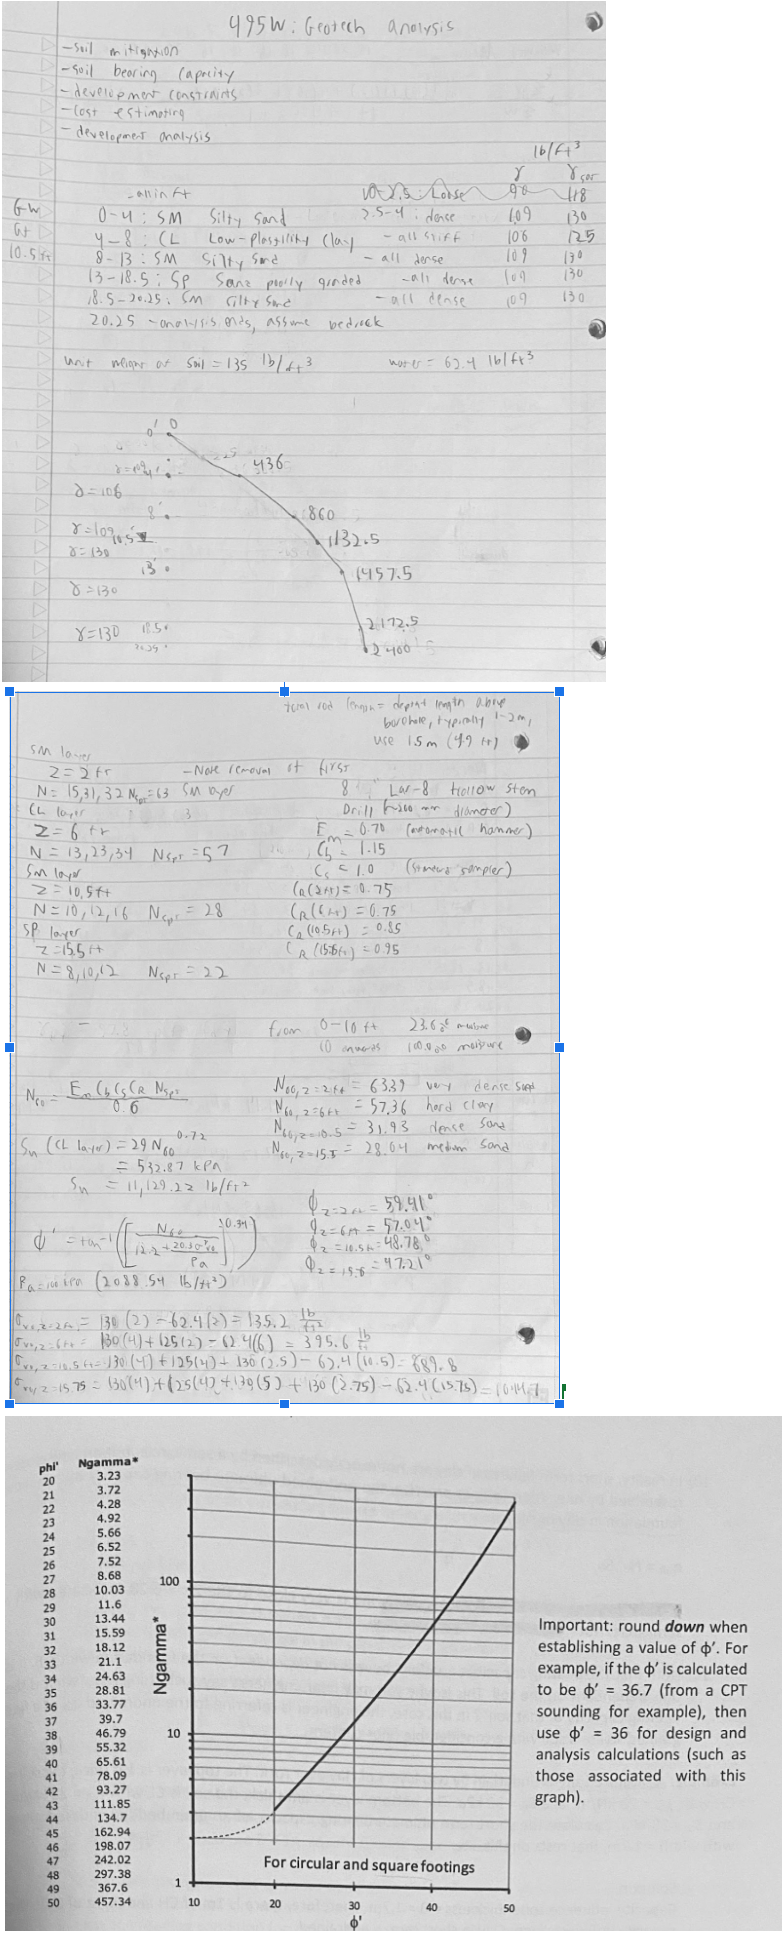 495W: Geotech analysis
-soil mitigation
-soil bearing capacity
-development constraints
-cost estimating
- development analysis
lb/ft³
-all in ft
γ γsat
0-2.5: Loose 90 118
GW
at
10.5 ft
0-4: SM Silty sand 2.5-4: dense 109 130
4-8: CL Low-plasticity clay - all stiff 106 125
8-13: SM Silty Sand - all dense 109 130
13-18.5: SP Sand poorly graded - all dense 109 130
18.5-20.25: SM Silty Sand - all dense 109 130
20.25 - analysis ends, assume bedrock
unit weight of soil = 135 lb/ft³ water = 62.4 lb/ft³
0' 0
436
γ=106
8' 860
γ=109
10.5' 1132.5
γ=130
13' 1457.5
γ=130
2172.5
γ=130 18.5
2400
total rod length = depth + length above
borehole, typically 1-2m,
use 1.5m (4.9 ft)
SM layer
z = 2 ft -Note removal of first
N = 15,31,32 Nspt=63 SM layer
8" Lar-8 Hollow Stem
CL layer
Drill (~200 mm diameter)
z = 6 ft
Em = 0.70 (automatic hammer)
N = 13,23,34 Nspt = 57
Cb = 1.15
SM layer
Cs = 1.0 (standard sampler)
z = 10.5 ft
CR(2ft) = 0.75
N = 10,12,16 Nspt = 28
CR(6ft) = 0.75
SP layer
CR(10.5ft) = 0.85
z = 15.5 ft
CR(15.5ft) = 0.95
N = 8,10,12 Nspt = 22
from 0-10 ft 23.6% moisture
10 onwards 100.0% moisture
N60 = Em Cb Cs CR Nspt / 0.6
N60, z=2ft = 63.39 very dense sand
N60, z=6ft = 57.36 hard clay
N60, z=10.5 = 31.93 dense sand
N60, z=15.5 = 28.04 medium sand
Su (CL layer) = 29 N60^0.72
= 532.87 kPa
Su = 11,129.22 lb/ft²
ϕ' = tan⁻¹([N60 / (12.2 + 20.3σ'vo/Pa)]^0.34)
ϕ z=2ft = 59.41°
ϕ z=6ft = 57.04°
ϕ z=10.5ft = 48.78°
ϕ z=15.5 = 47.21°
Pa = 100 kPa (2088.54 lb/ft²)
σvo, z=2ft = 130(2) - 62.4(2) = 135.2 lb/ft²
σvo, z=6ft = 130(4) + 125(2) - 62.4(6) = 395.6 lb/ft
σvo, z=10.5ft = 130(4) + 125(4) + 130(2.5) - 62.4(10.5) = 689.8
σvo, z=15.75 = 130(4) + 125(4) + 130(5) + 130(2.75) - 62.4(15.75) =
phi' Ngamma*
20 3.23
21 3.72
22 4.28
23 4.92
24 5.66
25 6.52
26 7.52
27 8.68
28 10.03
29 11.6
30 13.44
31 15.59
32 18.12
33 21.1
34 24.63
35 28.81
36 33.77
37 39.7
38 46.79
39 55.32
40 65.61
41 78.09
42 93.27
43 111.85
44 134.7
45 162.94
46 198.07
47 242.02
48 297.38
49 367.6
50 457.34
Ngamma*
100
10
1
For circular and square footings
10 20 30 40 50
ϕ'
Important: round down when
establishing a value of ϕ'. For
example, if the ϕ' is calculated
to be ϕ' = 36.7 (from a CPT
sounding for example), then
use ϕ' = 36 for design and
analysis calculations (such as
those associated with this
graph).